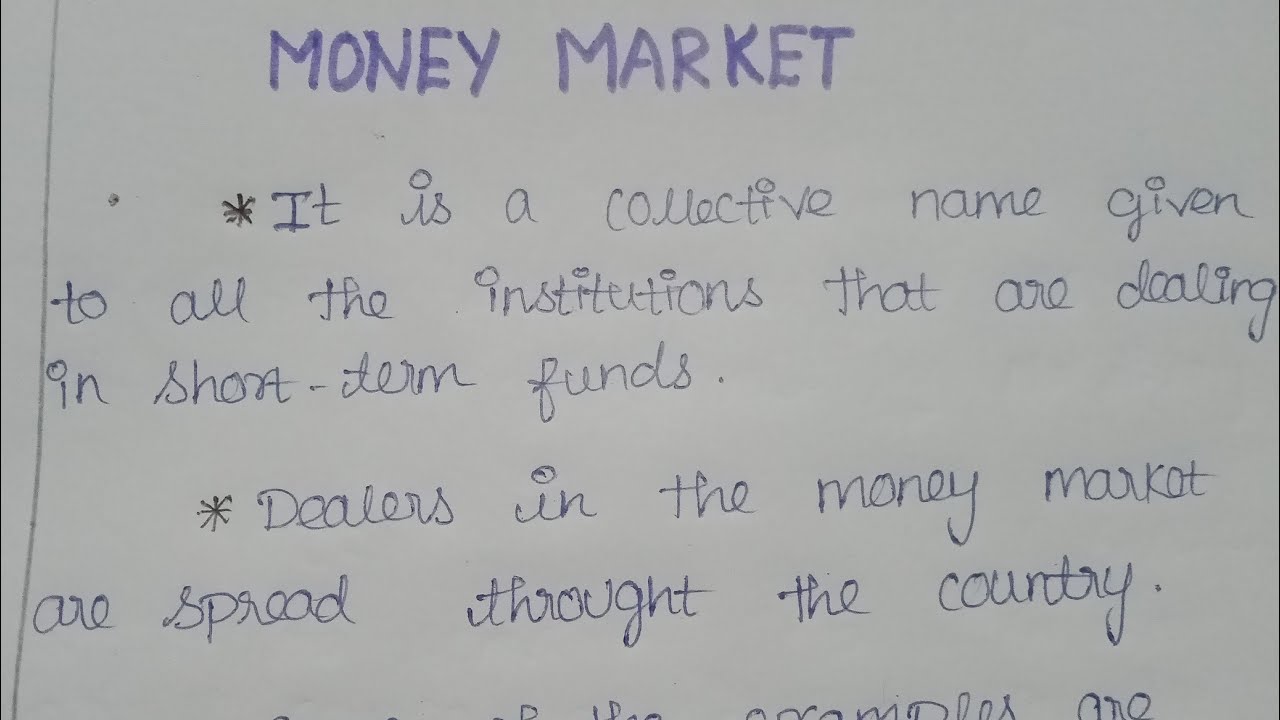 MONEY MARKET
* It is a collective name given
to all the institutions that are dealing
in short-term funds.
* Dealers in the money market
are spread throught the country.
of the examples are